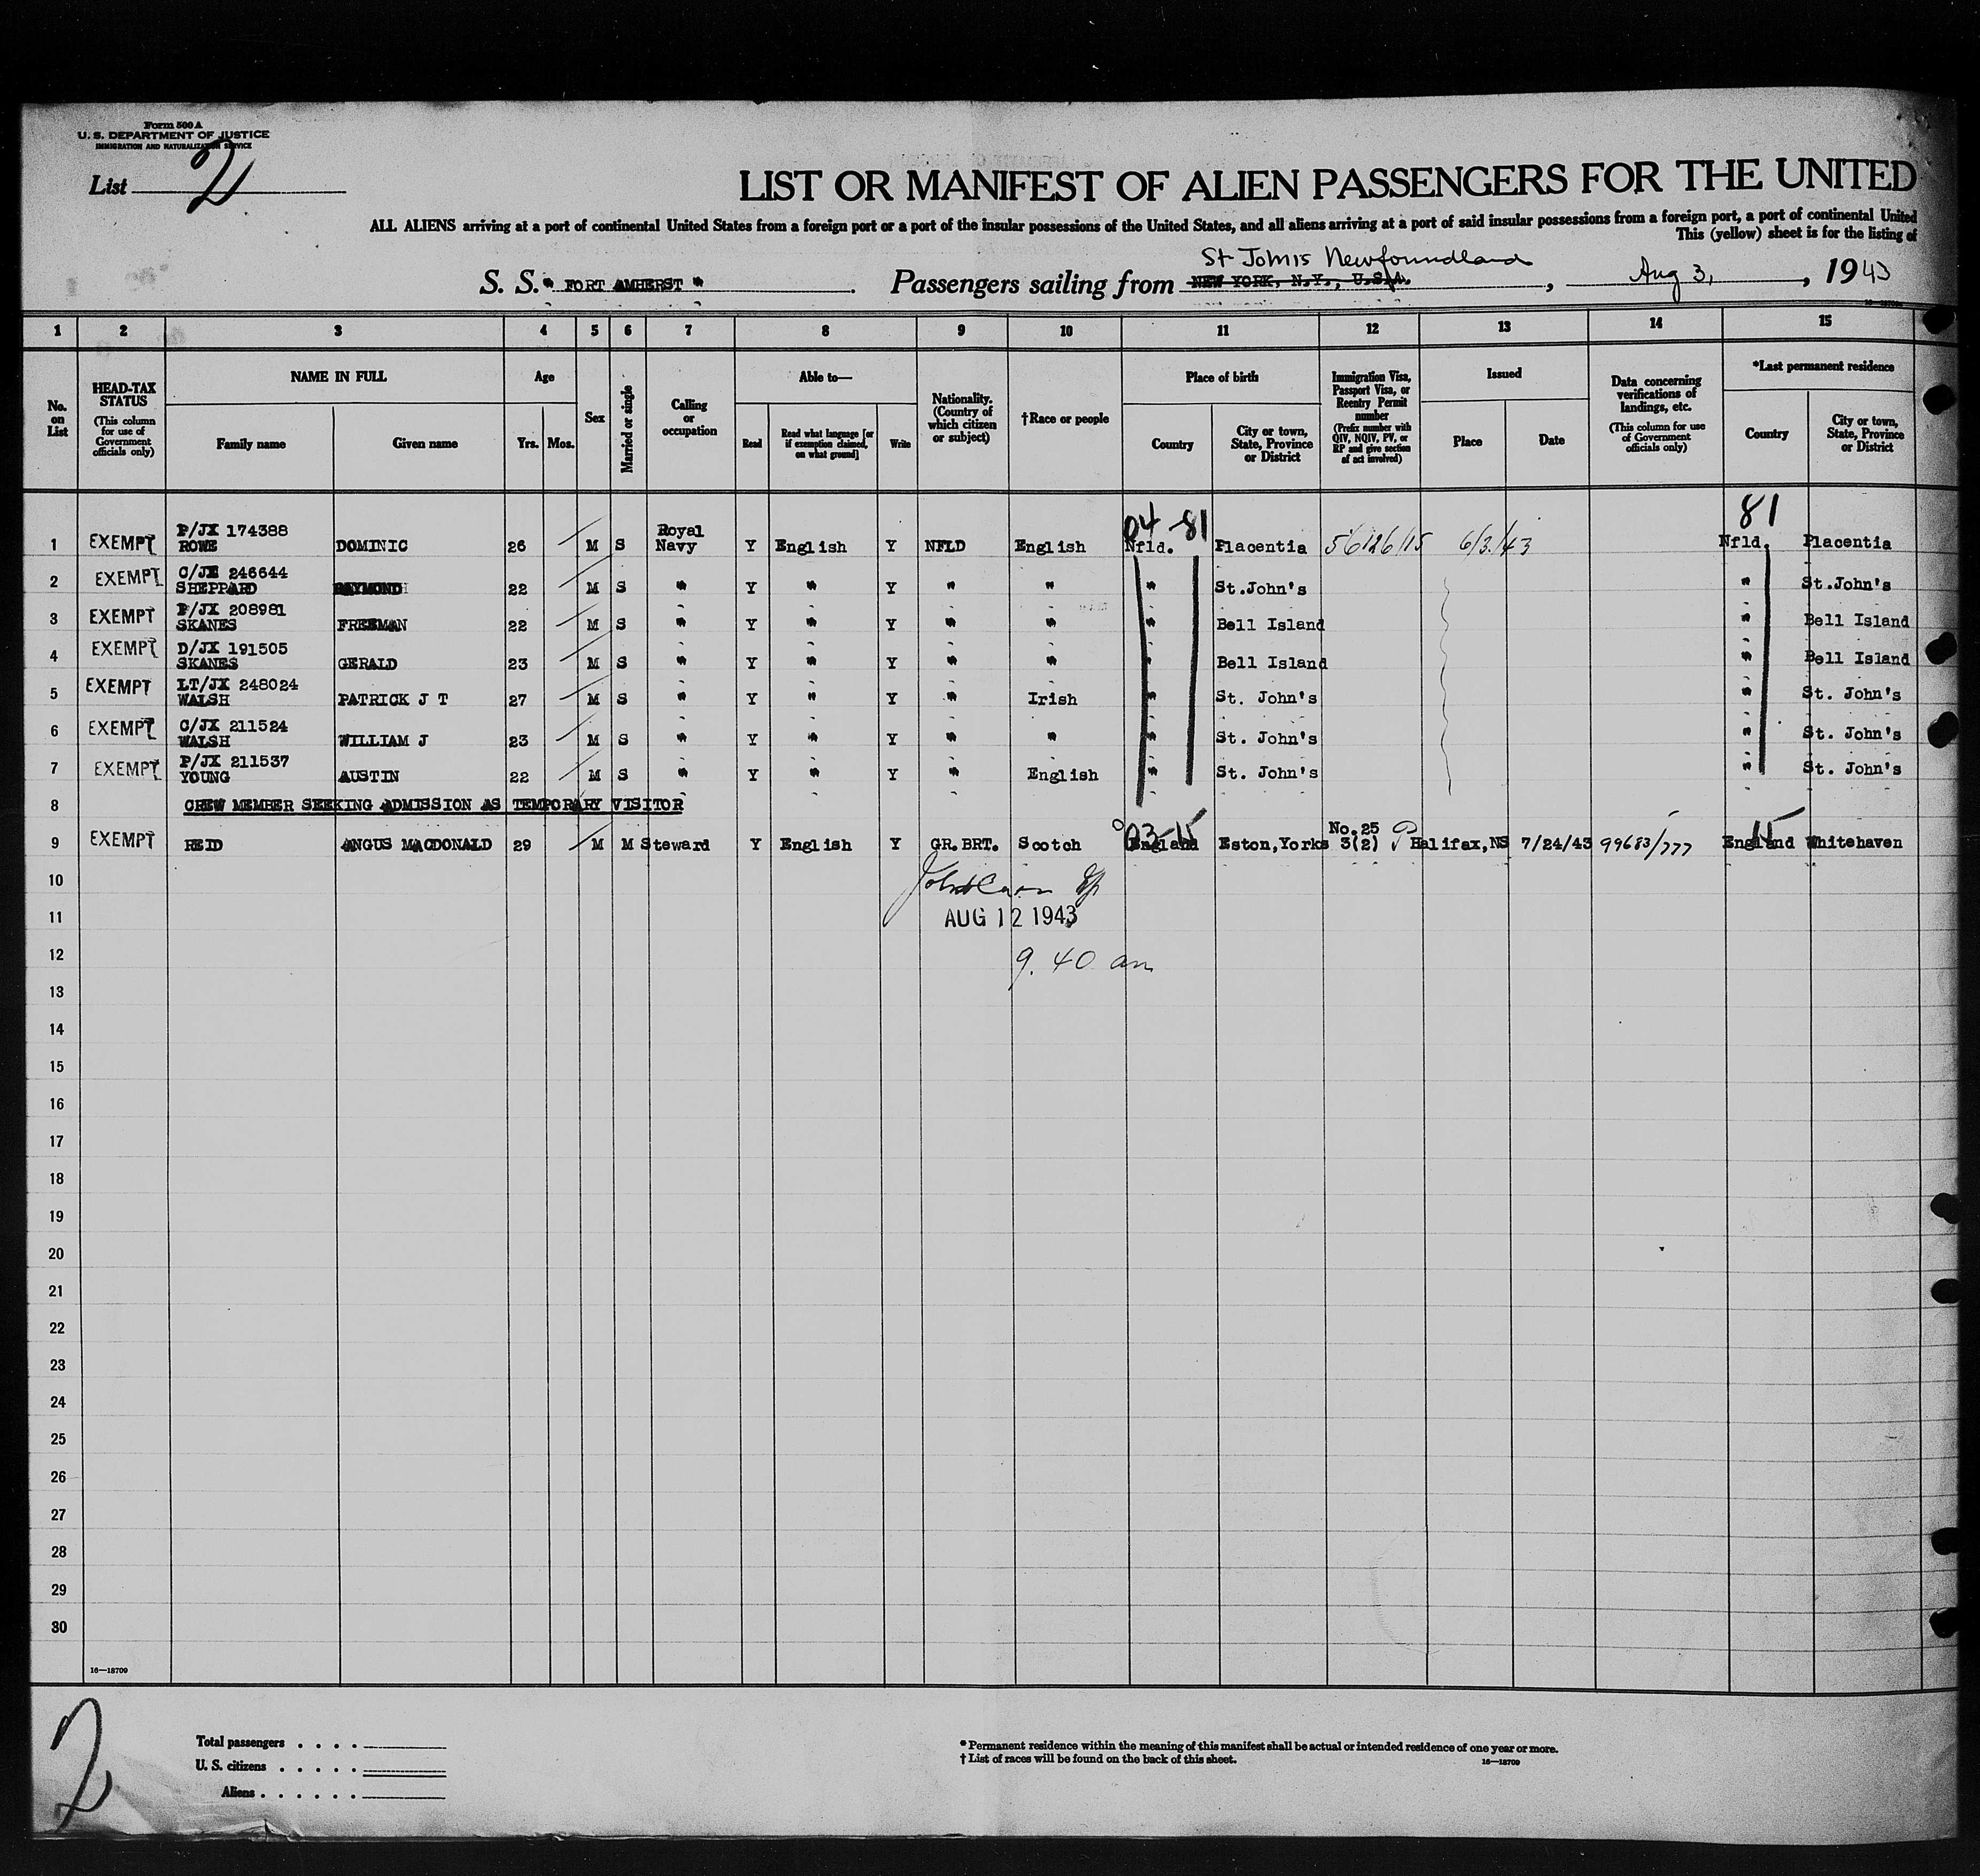 Form 500 A
U. S. DEPARTMENT OF JUSTICE
IMMIGRATION AND NATURALIZATION SERVICE
List 2
LIST OR MANIFEST OF ALIEN PASSENGERS FOR THE UNITED
ALL ALIENS arriving at a port of continental United States from a foreign port or a port of the insular possessions of the United States, and all aliens arriving at a port of said insular possessions from a foreign port, a port of continental United
This (yellow) sheet is for the listing of
St Johns Newfoundland
S. S. " FORT AMHERST " Passengers sailing from NEW YORK, N.Y., U.S.A. , Aug 3, , 1943
1 2 3 4 5 6 7 8 9 10 11 12 13 14 15
No. on List
HEAD-TAX STATUS (This column for use of Government officials only)
NAME IN FULL Family name Given name
Age Yrs. Mos.
Sex
Married or single
Calling or occupation
Able to— Read Read what language [or if exemption claimed, on what ground] Write
Nationality. (Country of which citizen or subject)
†Race or people
Place of birth Country City or town, State, Province or District
Immigration Visa, Passport Visa, or Reentry Permit number (Prefix number with QIV, NQIV, PV, or RP and give section of act involved)
Issued Place Date
Data concerning verifications of landings, etc. (This column for use of Government officials only)
*Last permanent residence Country City or town, State, Province or District
P/JX 174388 Royal 04 -81 81
1 EXEMPT ROWE DOMINIC 26 M S Navy Y English Y NFLD English Nfld. Placentia 56126/15 6/3/43 Nfld. Placentia
C/JX 246644
2 EXEMPT SHEPPARD RAYMOND 22 M S " Y " Y " " " St.John's " St.John's
P/JX 208981
3 EXEMPT SKANES FREEMAN 22 M S " Y " Y " " " Bell Island " Bell Island
D/JX 191505
4 EXEMPT SKANES GERALD 23 M S " Y " Y " " " Bell Island " Bell Island
LT/JX 248024
5 EXEMPT WALSH PATRICK J T 27 M S " Y " Y " Irish " St. John's " St. John's
C/JX 211524
6 EXEMPT WALSH WILLIAM J 23 M S " Y " Y " " " St. John's " St. John's
P/JX 211537
7 EXEMPT YOUNG AUSTIN 22 M S " Y " Y " English " St. John's " St. John's
8 CREW MEMBER SEEKING ADMISSION AS TEMPORARY VISITOR
03-15 No.25 15
9 EXEMPT REID ANGUS MACDONALD 29 M M Steward Y English Y GR.BRT. Scotch England Eston,Yorks 3(2) P Halifax,NS 7/24/43 99683/777 England Whitehaven
10
11 AUG 12 1943
12 9.40 am
13
14
15
16
17
18
19
20
21
22
23
24
25
26
27
28
29
30
16—18709
2
Total passengers . . . .
U. S. citizens . . . . .
Aliens . . . . . .
* Permanent residence within the meaning of this manifest shall be actual or intended residence of one year or more.
† List of races will be found on the back of this sheet. 16—18709